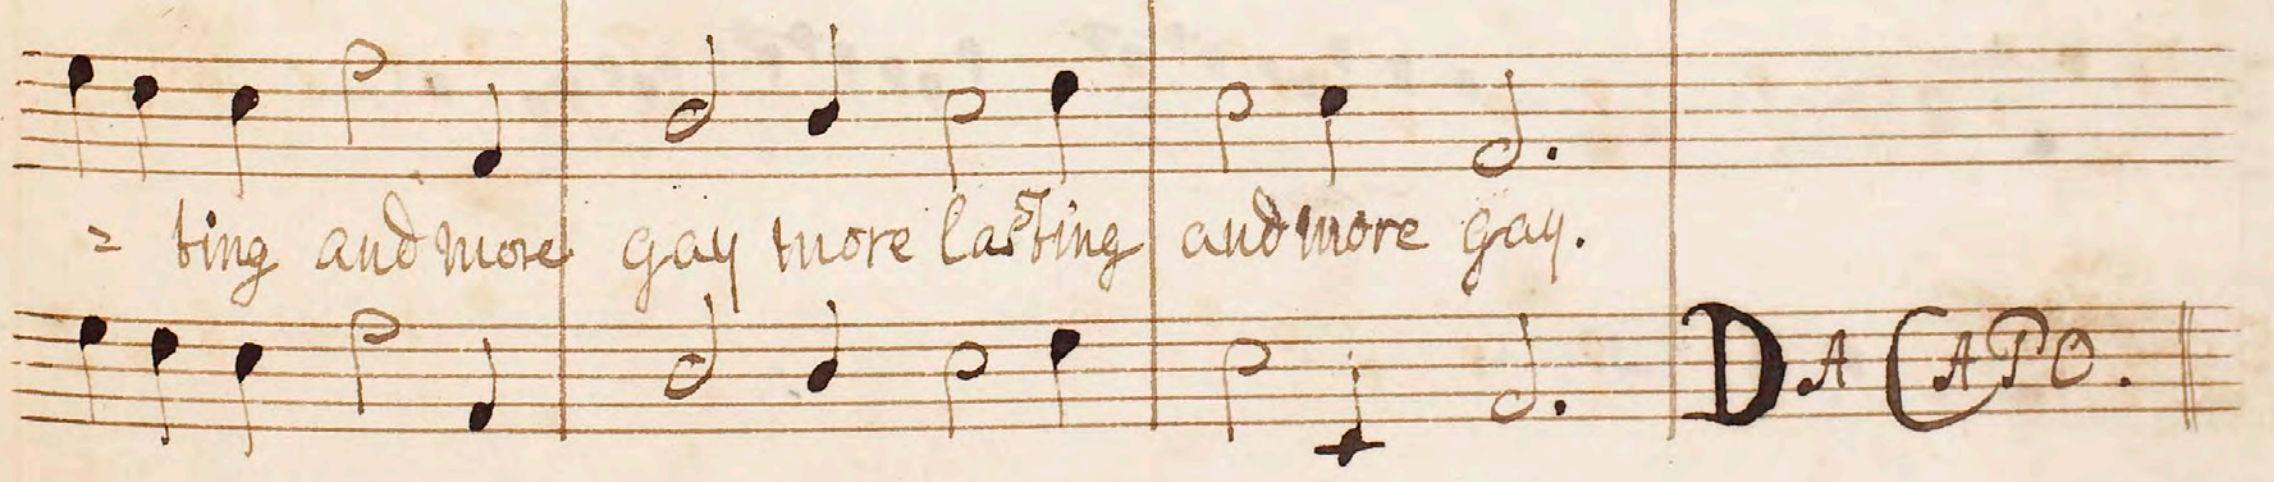 = ting and more gay more lasting and more gay.
DA CAPO.